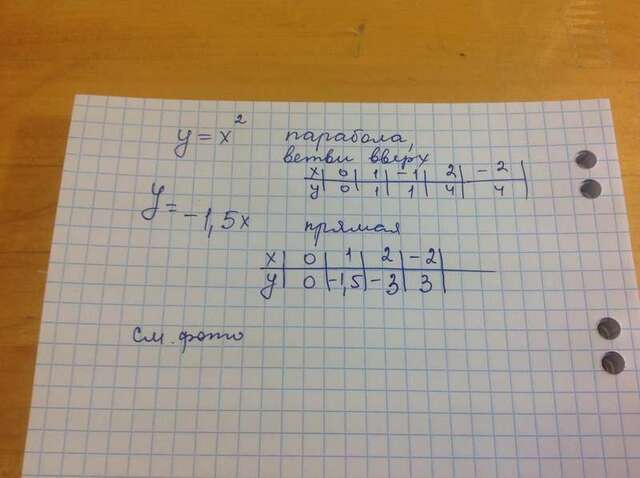 y = x² парабола,
ветви вверх
x | 0 | 1 | -1 | 2 | -2
y | 0 | 1 | 1 | 4 | 4
y = -1,5x прямая
x | 0 | 1 | 2 | -2 |
y | 0 | -1,5 | -3 | 3 |
См. фото